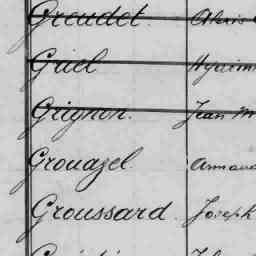 Greudet. Alexis
Griel Hyacin
Grignon. Jean M
Grouazel. Armand
Groussard. Joseph